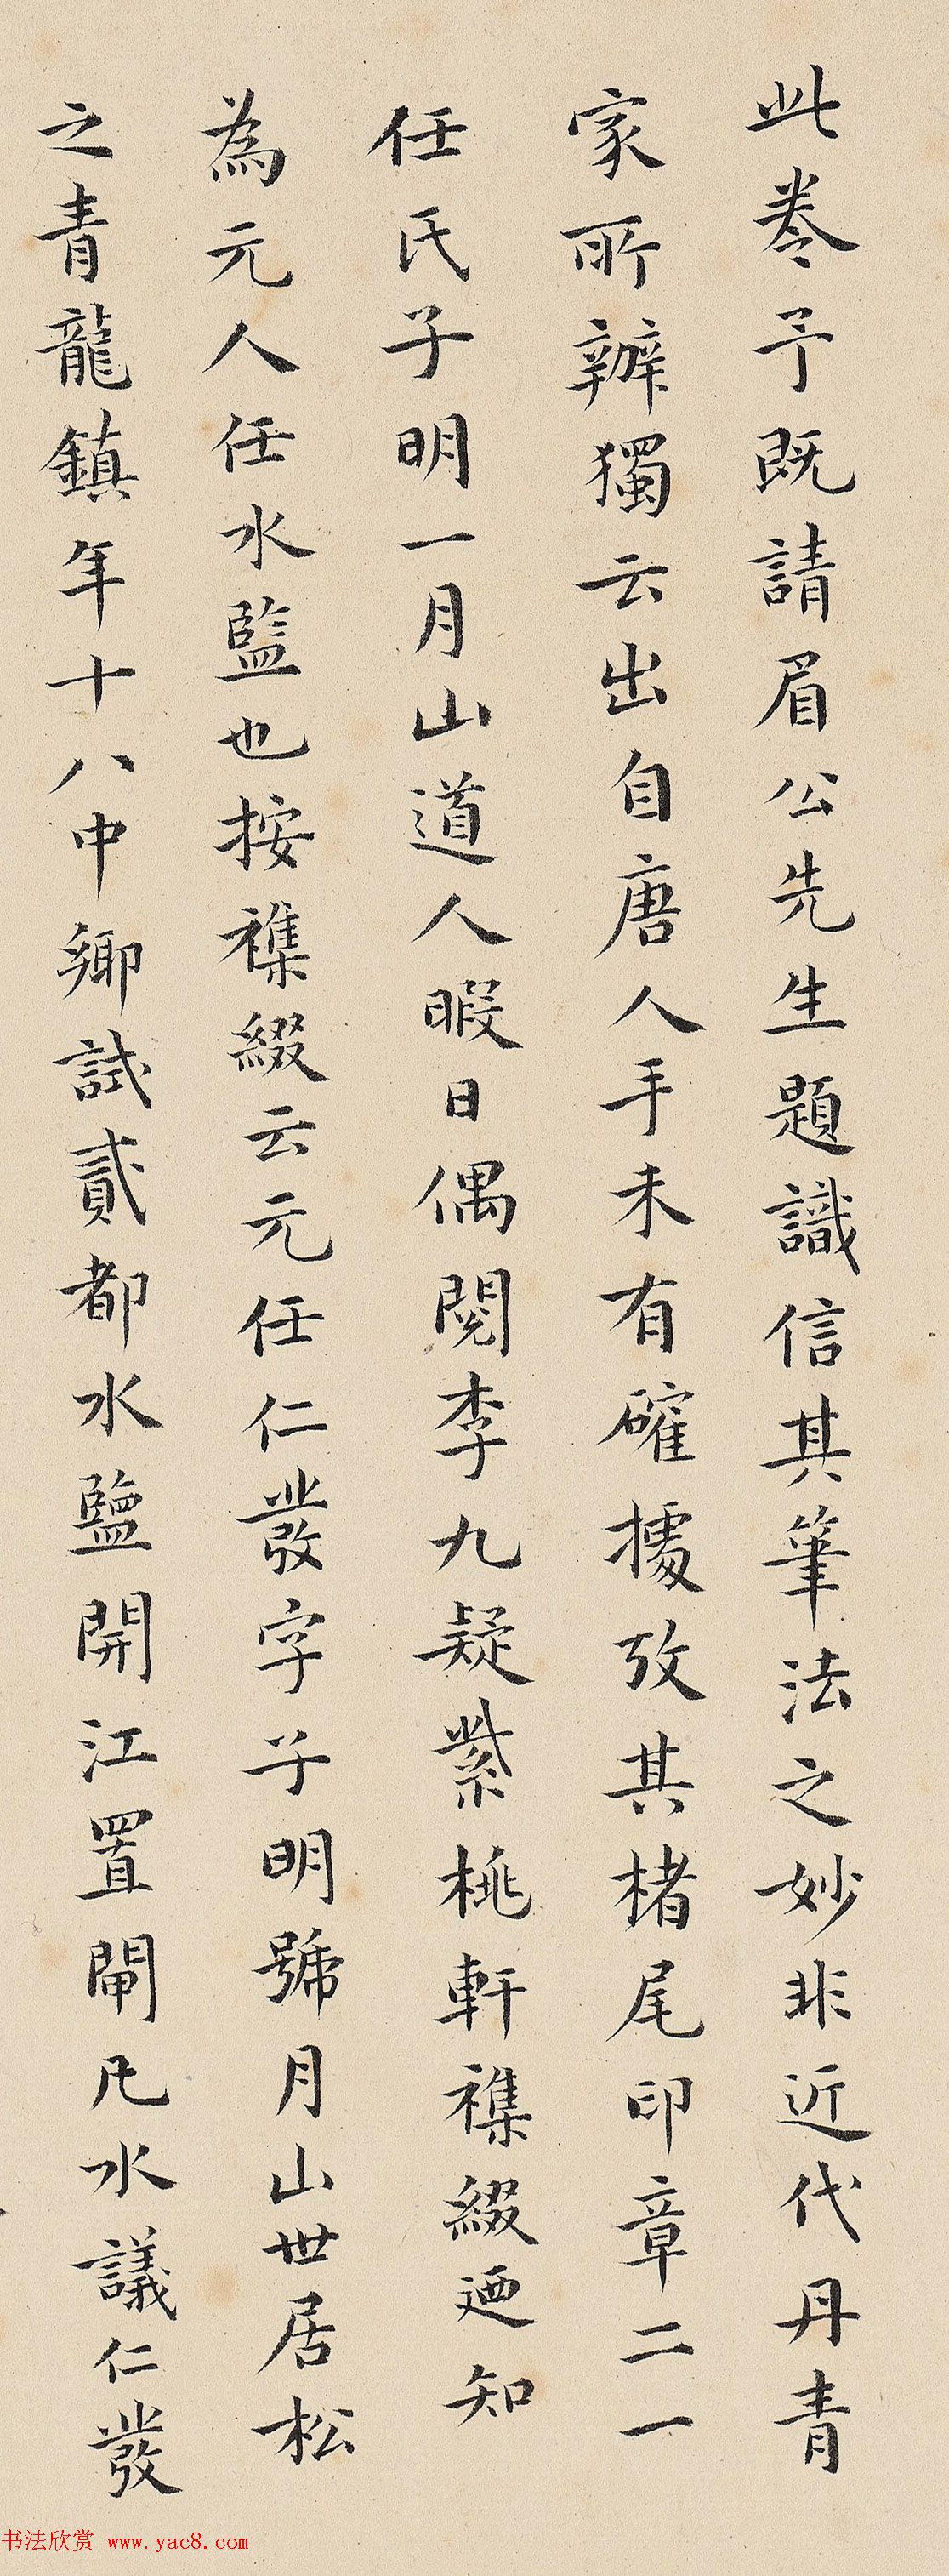 此卷予既請眉公先生題識信其筆法之妙非近代丹青
家所辦獨云出自唐人手未有確據攷其楮尾印章二一
任氏子明一月山道人暇日偶閱李九疑紫桃軒襍綴迺知
為元人任水監也按襍綴云元任仁發字子明號月山世居松
之青龍鎮年十八中鄉試貳都水監開江置閘凡水議仁發
书法欣赏 www.yac8.com